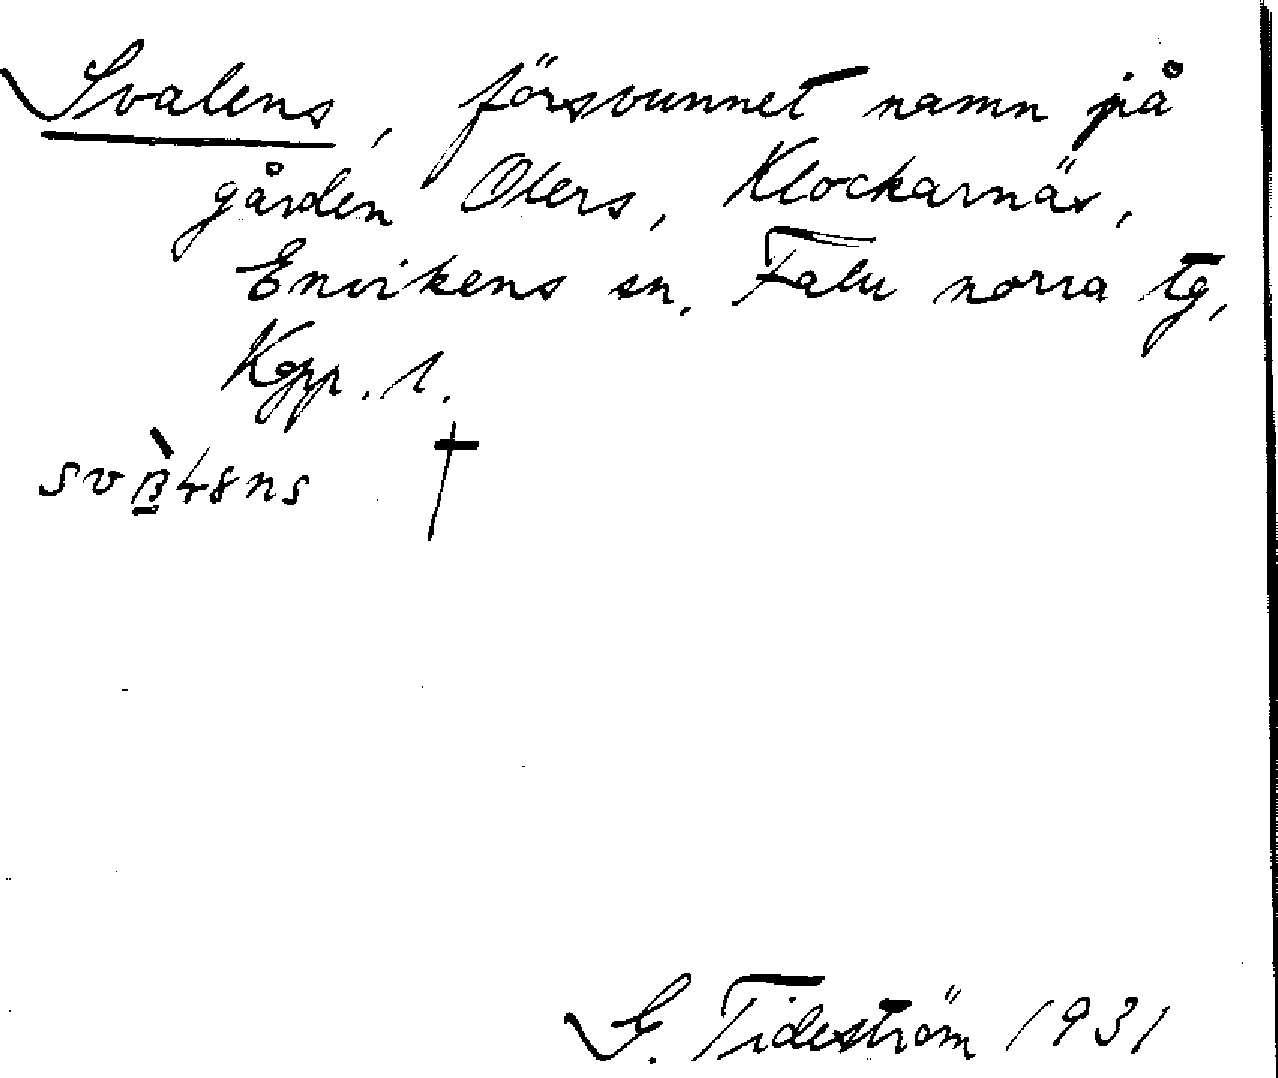 Svalens, försvunnet namn på
gården Olers, Klockarnäs,
Envikens sn, Falu norra tg,
Kgpp. 1.
†
G. Tideström 1931